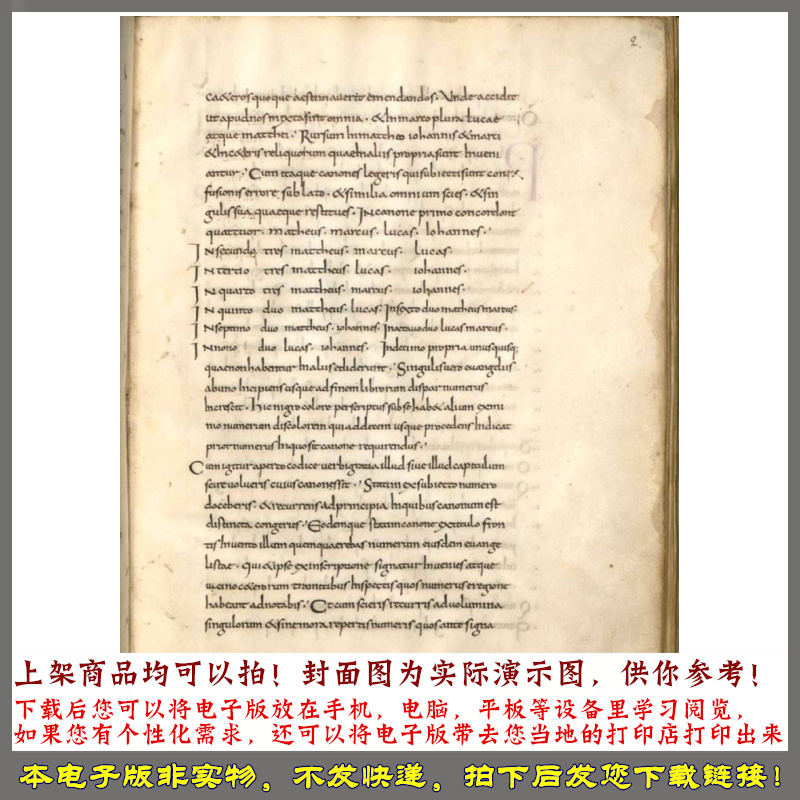 2.
cæteros quoque aestimaverit emendandos. Unde accidit
ut apud nos mixta sint omnia. & In marco plura lucae
atque matthei. Rursum In mattheo iohannis & marci
& In cæteris reliquorum quae In aliis propria sunt Inveni
antur. Cum itaque canones legeris qui subiecti sunt con
fusionis errore sublato. & similia omnium scies. & sin
gulis sua quaeque restitues. In canone primo concordant
quattuor. matheus. marcus. lucas. Iohannes.
In secundo tres mattheus. marcus. lucas.
In tertio tres mattheus lucas. iohannes.
In quarto tres mattheus. marcus. iohannes.
In quinto duo mattheus lucas. In sexto duo matheus marcus.
In septimo duo mattheus. iohannes. In octavo duo lucas marcus.
In nono duo lucas. iohannes. In decimo propria unusquisq;
quae non habentur In aliis ediderunt. Singulis vero evangeliis
ab uno Incipiens usque ad finem librorum dispar numerus
Increscit. Hic nigro colore perscriptus sub se habet alium ex mi
nio numerum discolorem qui ad decem usque procedens Indicat
prior numerus In quo sit canone requirendus.
Cum igitur aperto codice verbi gratia illud sive illud capitulum
scire volueris cuius canonis sit. Statim ex subiecto numero
doceberis. & recurrens ad principia In quibus canonum est
distincta congeries. Eodemque statim canone ex titulo fron
tis Invento illum quem quaerebas numerum eiusdem evange
listae. Qui & ipse ex inscriptione signatur Invenies atque
vicino cæterorum tramitibus Inspectis quos numerus e regione
habeant adnotabis. Et cum scieris recurris ad volumina
singulorum & sine mora repertis numeris quos ante signa
上架商品均可以拍！封面图为实际演示图，供你参考！
下载后您可以将电子版放在手机，电脑，平板等设备里学习阅览，
如果您有个性化需求，还可以将电子版带去您当地的打印店打印出来
本电子版非实物，不发快递，拍下后发您下载链接！